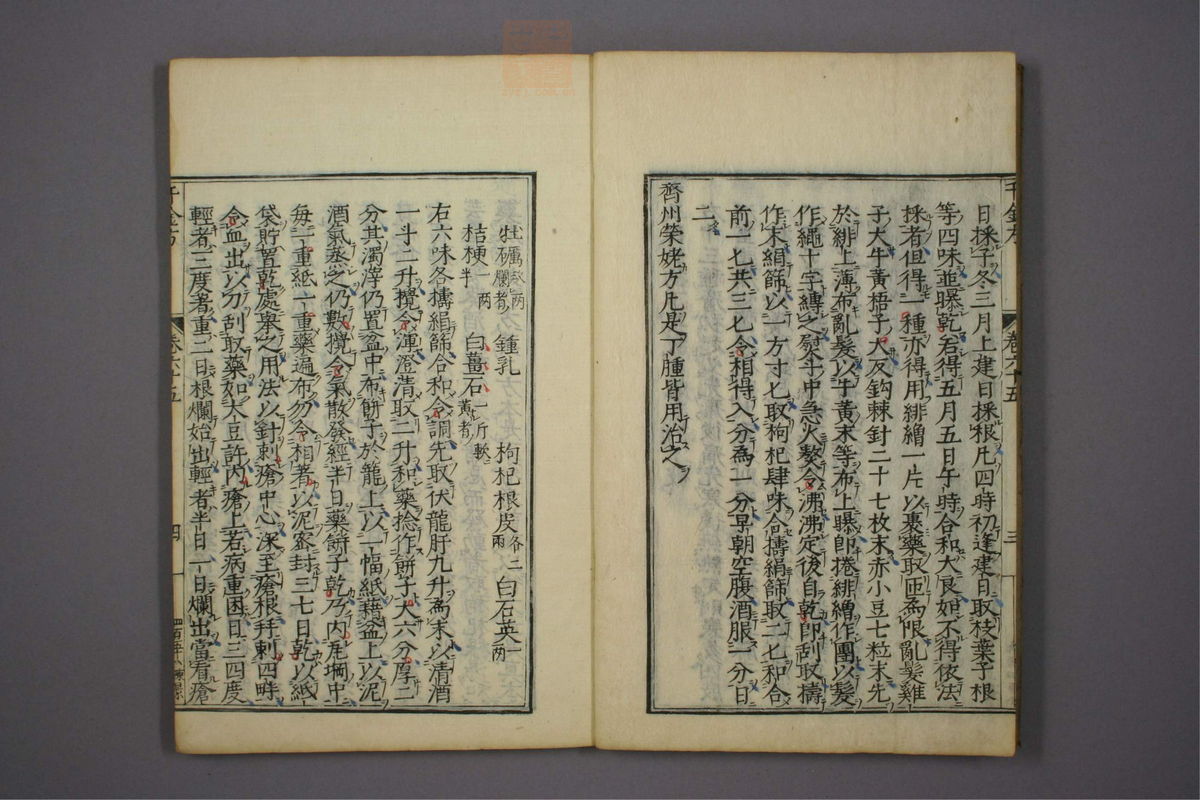 日採子冬三月上建日採根凡四時初逢建日取枝葉子根
等四味並曝乾若得五月五日午時合和大良如不得依法
採者但得一種亦得用緋繒一片以裹藥取匝為限亂髮雞
子大牛黃梧子大反鉤棘針二十七枚末赤小豆七粒末先
於緋上薄布亂髮以牛黃末等布上曝即捲緋繒作團以髮
作繩十字縛之熨斗中急火熬令沸沸定後自乾即刮取擣
作末絹篩以一方寸匕取枸杞肆味合擣絹篩取二匕和合
前一匕共三匕令相得入分為一分早朝空腹酒服一分日
二
齊州榮姥方凡是丁腫皆用治之
千金方
卷六十五
三
牡礪 九兩爛者 鍾乳 枸杞根皮 各二兩 白石英 一兩
桔梗 一兩半 白薑石 一斤軟黃者
右六味各擣絹篩合和令調先取伏龍肝九升為末以清酒
一斗二升攪令渾澄清取二升和藥捻作餅子大六分厚二
分其濁滓仍置盆中布餅子於籠上以一幅紙藉盆上以泥
酒氣蒸之仍數攪令氣散發經半日藥餅子乾乃內瓦坩中
每一重紙一重藥遍布勿令相著以泥密封三七日乾以紙
袋貯置乾處舉之用法以針刺瘡中心深至瘡根并刺四畔
令血出以刀刮取藥如大豆許內瘡上若病重困日三四度
輕者三度者重二日根爛始出輕者半日一日爛出當看瘡
千金方
卷六十五
四